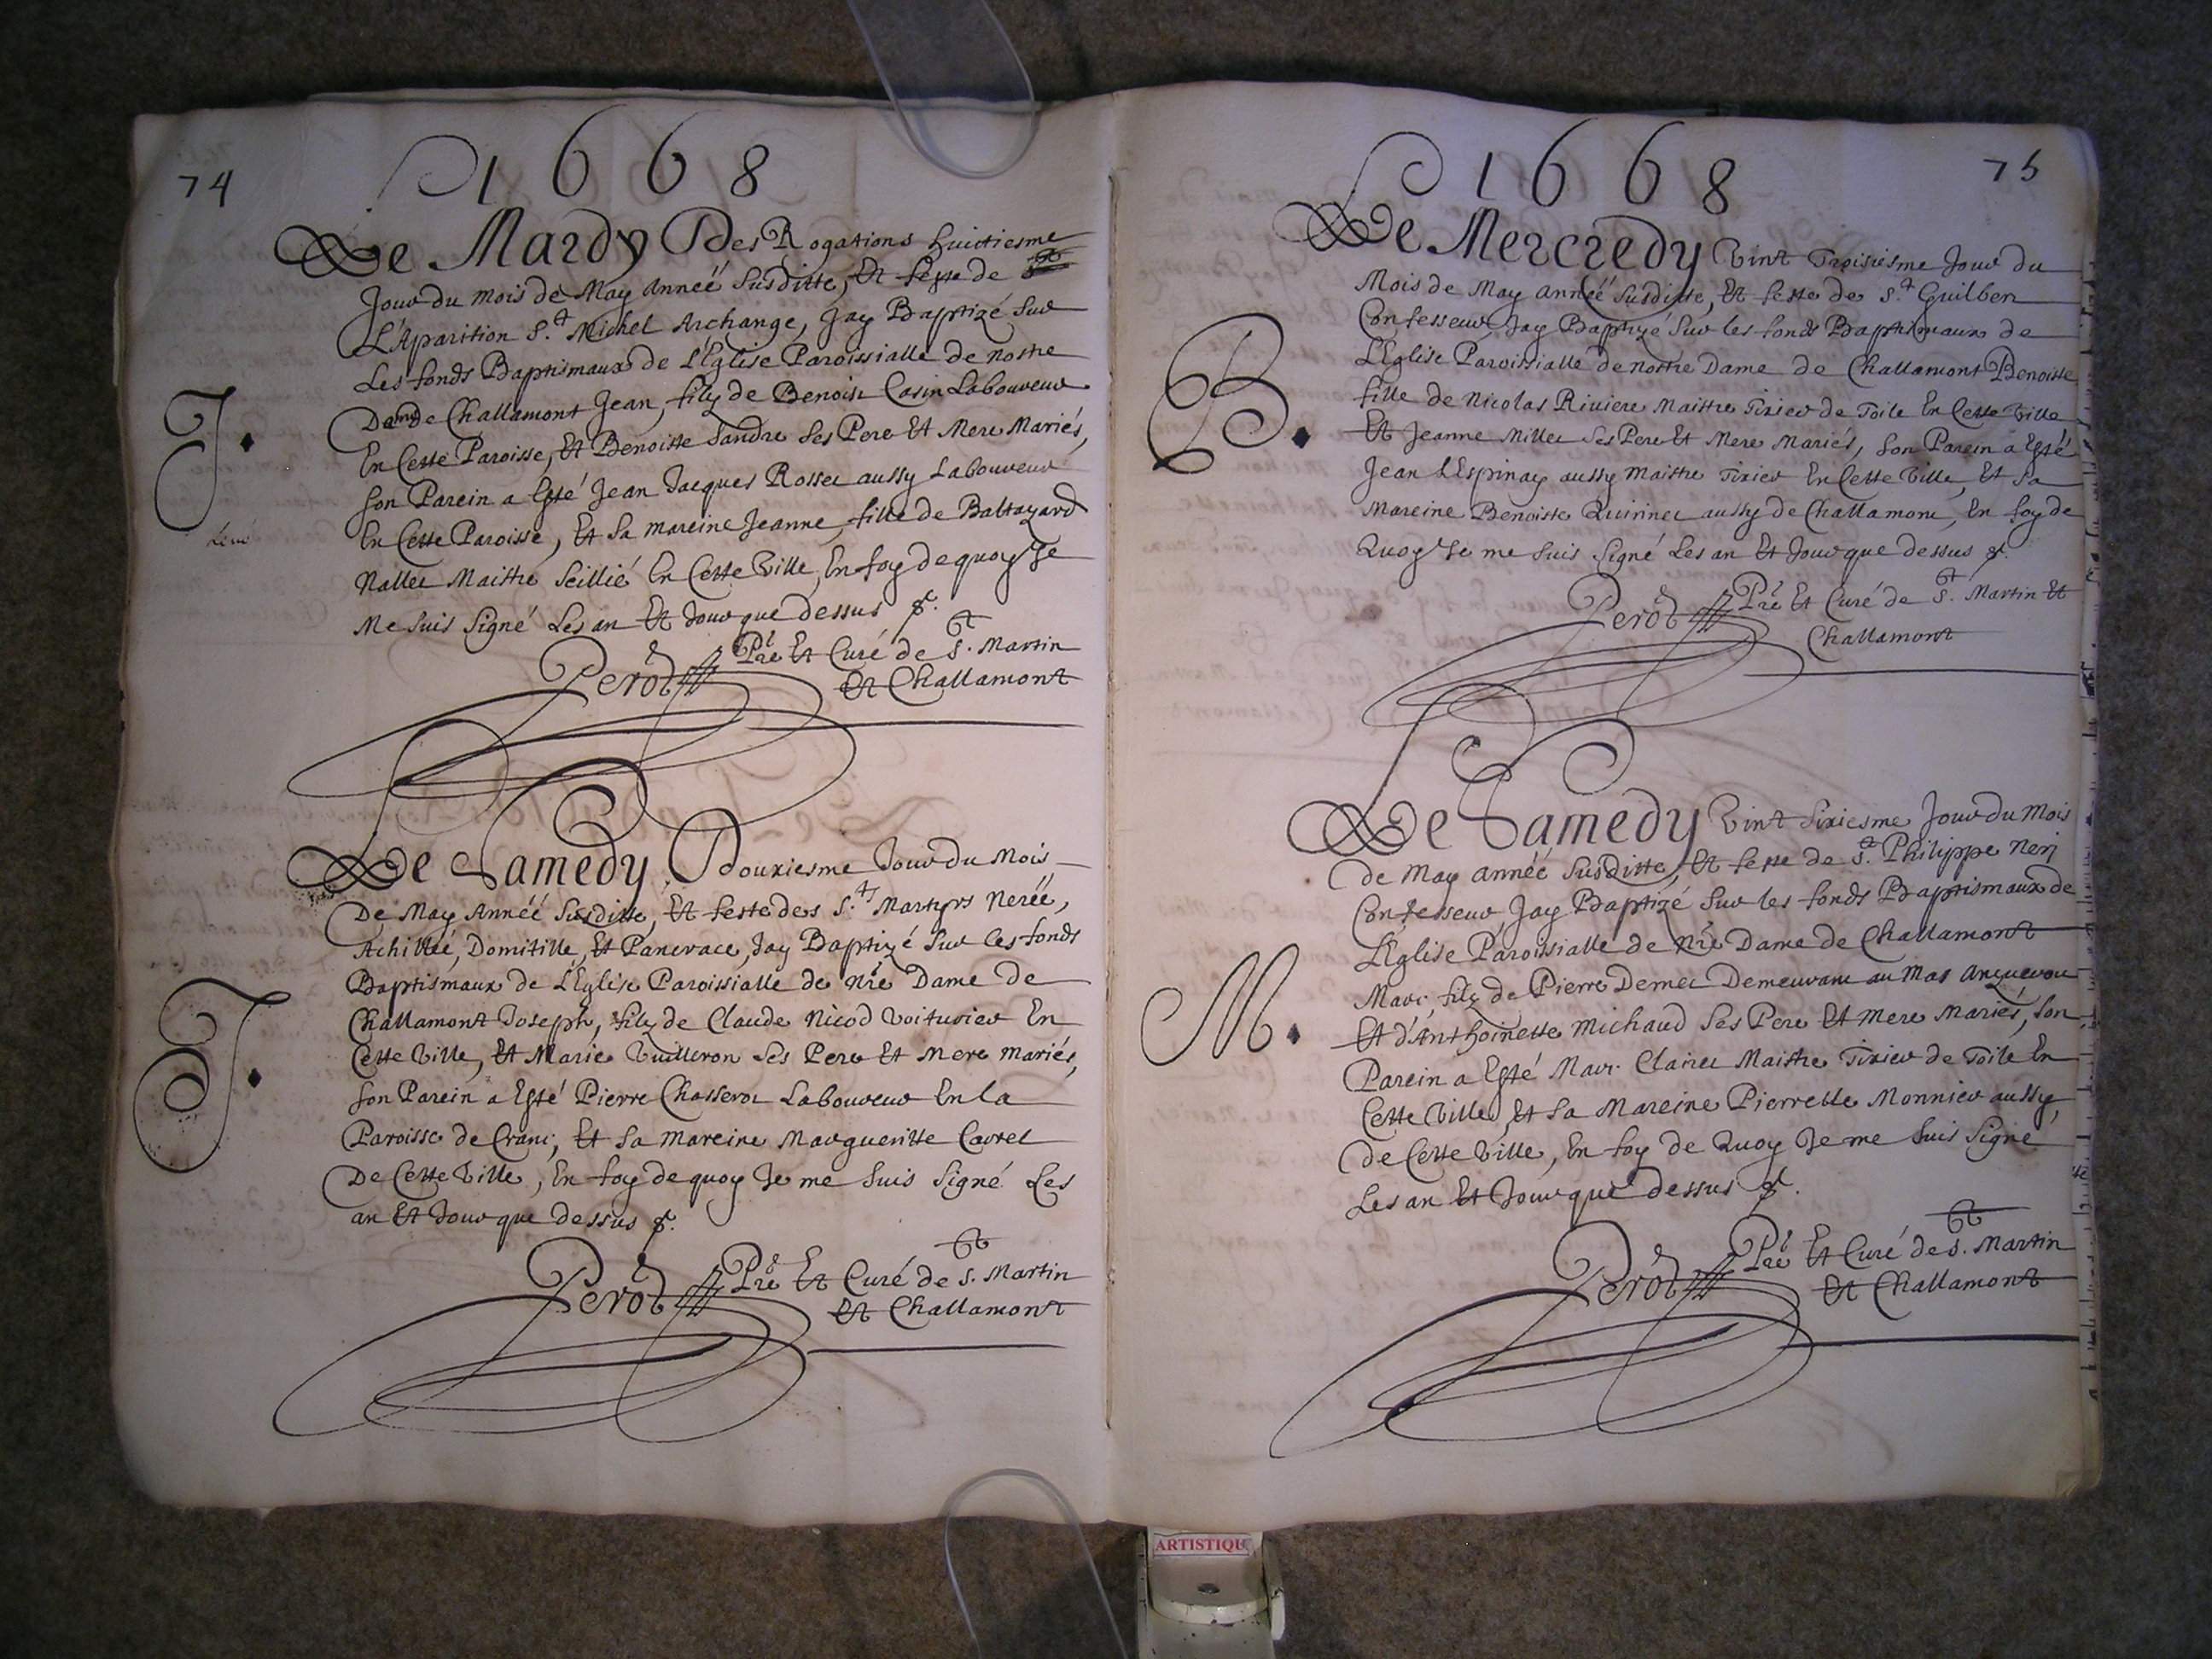 74
1668
Le Mardy Des Rogations huictiesme
Jour du mois de May Année Susditte, Et feste de
L'Aparition S.t Michel Archange, Jay Baptizé Sur
Les fonds Baptismaux de L'Eglise Paroissialle de Nostre
Dame de Challamont Jean, filz de Benoist Casin Laboureur
En Cette Paroisse, Et Benoiste Sandre Ses Pere Et Mere Mariés,
Son Parein a Esté Jean Jacques Rosset aussy Laboureur
En Cette Paroisse, Et Sa mareine Jeanne, fille de Baltazard
Nallet Maistre Seillié En Cette Ville, En foy de quoy Je
Me Suis Signé Les an Et Jour que dessus
J.
Perôd Pre Et Curé de S.t Martin
Et Challamont
Le Samedy Douziesme Jour du Mois
De May Année Susditte, Et feste des S.ts Martyrs Nerée,
Achillée, Domitille, Et Pancrace, Jay Baptizé Sur Les fonds
Baptismaux de L'Eglise Paroissialle de Nre Dame de
Challamont Joseph, filz de Claude Nicod Voiturier En
Cette Ville, Et Marie Vuilleron Ses Pere Et Mere mariés,
Son Parein a Esté Pierre Chasserot Laboureur En la
Paroisse de Cranc, Et Sa mareine Margueritte Cartet
De Cette Ville, En foy de quoy Je me Suis Signé Les
an Et Jour que dessus
J.
Perôd Pre Et Curé de S.t Martin
Et Challamont
75
1668
Le Mercredy Vint Troisiesme Jour du
Mois de May année Susditte, Et feste de S.t Guilben
Confesseur, Jay Baptizé Sur les fonds Baptismaux de
L'Eglise Paroissialle de Nostre Dame de Challamont Benoiste
fille de Nicolas Riviere Maistre Tixier de Toile En Cette Ville
Et Jeanne Millet Ses Pere Et Mere Mariés, Son Parein a Esté
Jean L'Espinay aussy Maistre Tixier En Cette Ville, Et Sa
Mareine Benoiste Quirinet aussy de Challamont, En foy de
Quoy Je me Suis Signé Les an Et Jour que dessus
B.
Perôd Pre Et Curé de S.t Martin Et
Challamont
Le Samedy Vint Sixiesme Jour du Mois
De May année Susditte, Et feste de S.t Philippe Neri
Confesseur, Jay Baptizé Sur les fonds Baptismaux de
L'Eglise Paroissialle de Nre Dame de Challamont
Marc, filz de Pierre Demet Demeurant au Mas
Et d'Anthoinette Michaud Ses Pere Et Mere Mariés, Son
Parein a Esté Marc Clairet Maistre Tixier de Toile En
Cette Ville, Et Sa Mareine Pierrette Monnier aussy
de Cette Ville, En foy de Quoy Je me Suis Signé
Les an Et Jour que dessus
M.
Perôd Pre Et Curé de S.t Martin
Et Challamont
ARTISTIQU